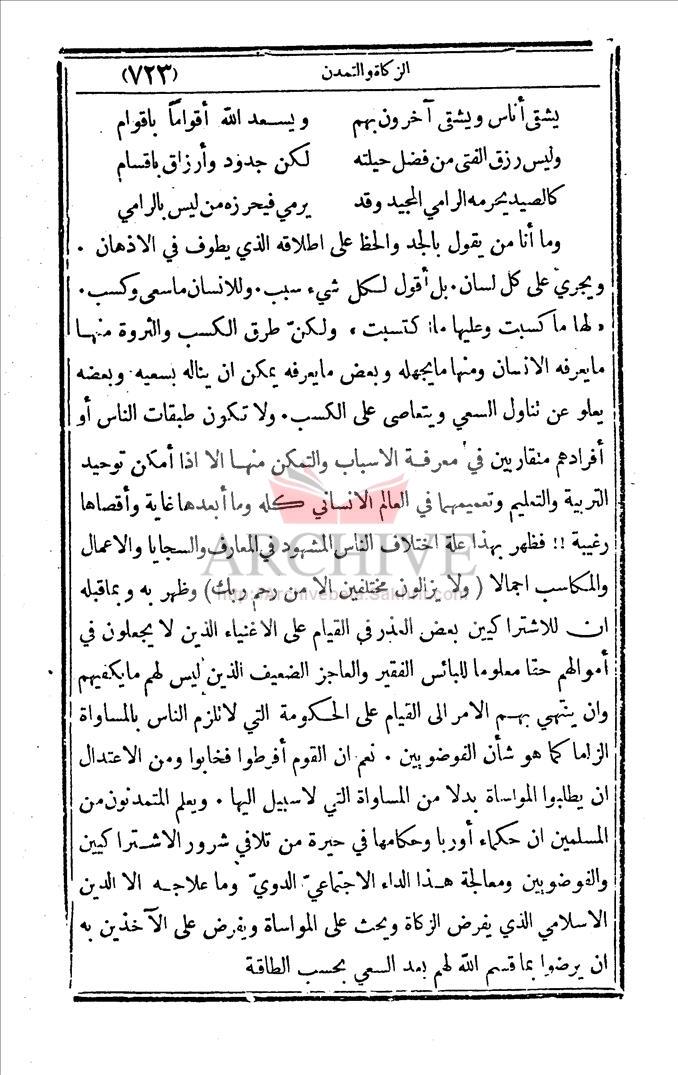 الزكاة والتمدن (٧٢٣)
يشقى أناس ويشقى آخرون بهم ويسعد الله أقواماً باقوام
وليس رزق الفتى من فضل حيلته لكن جدود وأرزاق باقسام
كالصيد يحرمه الرامي المجيد وقد يرمي فيحرزه من ليس بالرامي
وما أنا من يقول بالجد والحظ على اطلاقه الذي يطوف في الاذهان .
ويجري على كل لسان . بل أقول لكل شيء سبب . وللانسان ما سعى وكسب .
« لها ما كسبت وعليها ما اكتسبت » ولكنّ طرق الكسب والثروة منها
ما يعرفه الانسان ومنها ما يجهله وبعض ما يعرفه يمكن ان يناله بسعيه وبعضه
يعلو عن تناول السعي ويتعاصى على الكسب . ولا تكون طبقات الناس أو
أفرادهم متقاربين في معرفة الاسباب والتمكن منها الا اذا أمكن توحيد
التربية والتعليم وتعميمهما في العالم الانساني كله وما أبعدها غاية وأقصاها
رغيبة !! فظهر بهذا علة اختلاف الناس المشهود في المعارف والسجايا والاعمال
ARCHIVE
والمكاسب اجمالا ( ولا يزالون مختلفين الا من رحم ربك ) وظهر به وبما قبله
ان للاشتراكيين بعض العذر في القيام على الاغنياء الذين لا يجعلون في
أموالهم حقا معلوما للبائس الفقير والعاجز الضعيف الذين ليس لهم ما يكفيهم
وان ينتهي بهم الامر الى القيام على الحكومة التي لا تلزم الناس بالمساواة
الزاما كما هو شأن الفوضويين . نعم ان القوم أفرطوا فخابوا ومن الاعتدال
ان يطلبوا المواساة بدلا من المساواة التي لا سبيل اليها . ويعلم المتمدنون من
المسلمين ان حكماء أوربا وحكامها في حيرة من تلافي شرور الاشتراكيين
والفوضويين ومعالجة هذا الداء الاجتماعيّ الدويّ وما علاجه الا الدين
الاسلامي الذي يفرض الزكاة ويحث على المواساة ويفرض على الآخذين به
ان يرضوا بما قسم الله لهم بعد السعي بحسب الطاقة